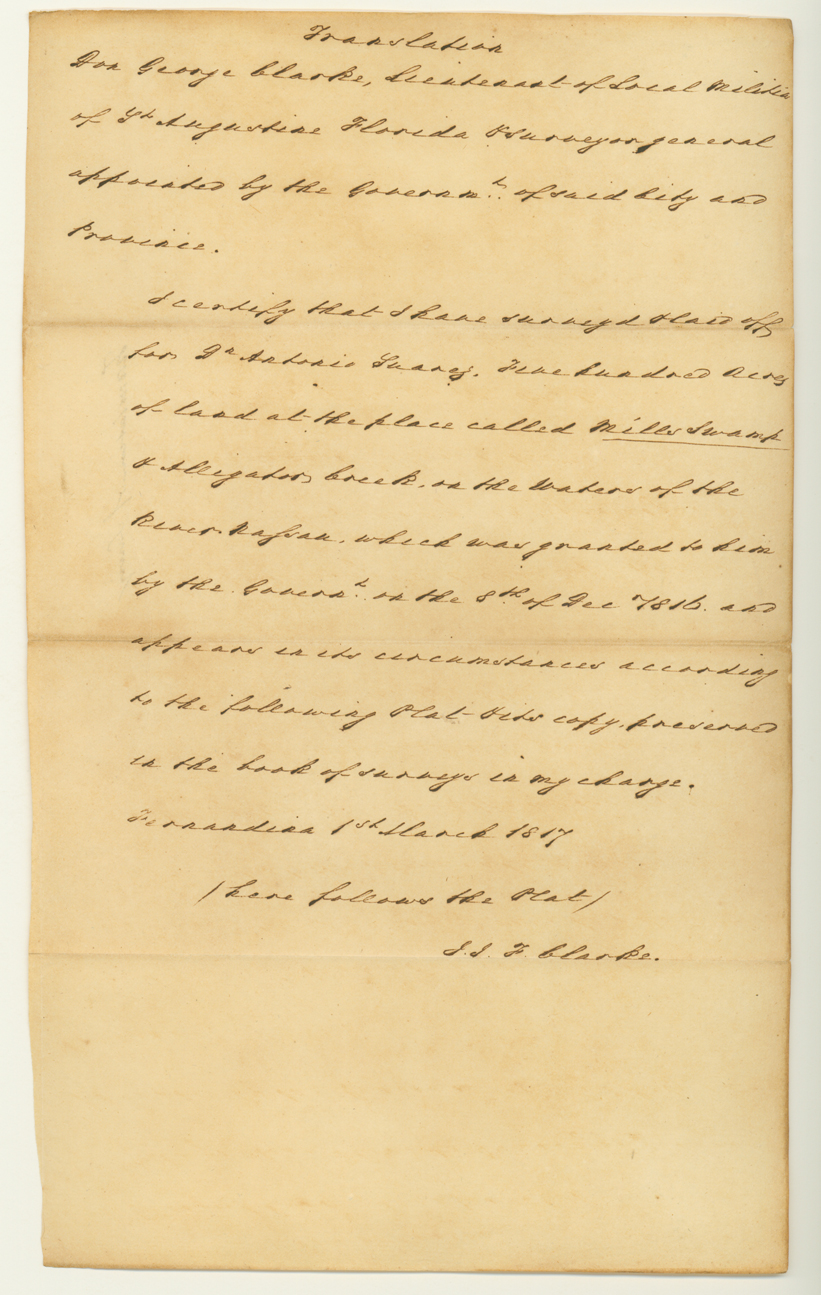 Translation
Don George Clarke, Lieutenant of Local Militia
of St Augustine Florida & surveyor general
appointed by the Governmt. of said City and
Province.
I certify that I have survey'd & laid off
for Dn Antonio Suarez. Five hundred Acres
of land at the place called Mills Swamp
& Allegator Creek, on the Waters of the
River Nassau. which was granted to him
by the Governt. on the 8th of Dec 1816. and
appears in its circumstances according
to the following Plat & its copy preserved
in the book of surveys in my charge.
Fernandina 1st March 1817
(here follows the Plat)
F. Clarke.